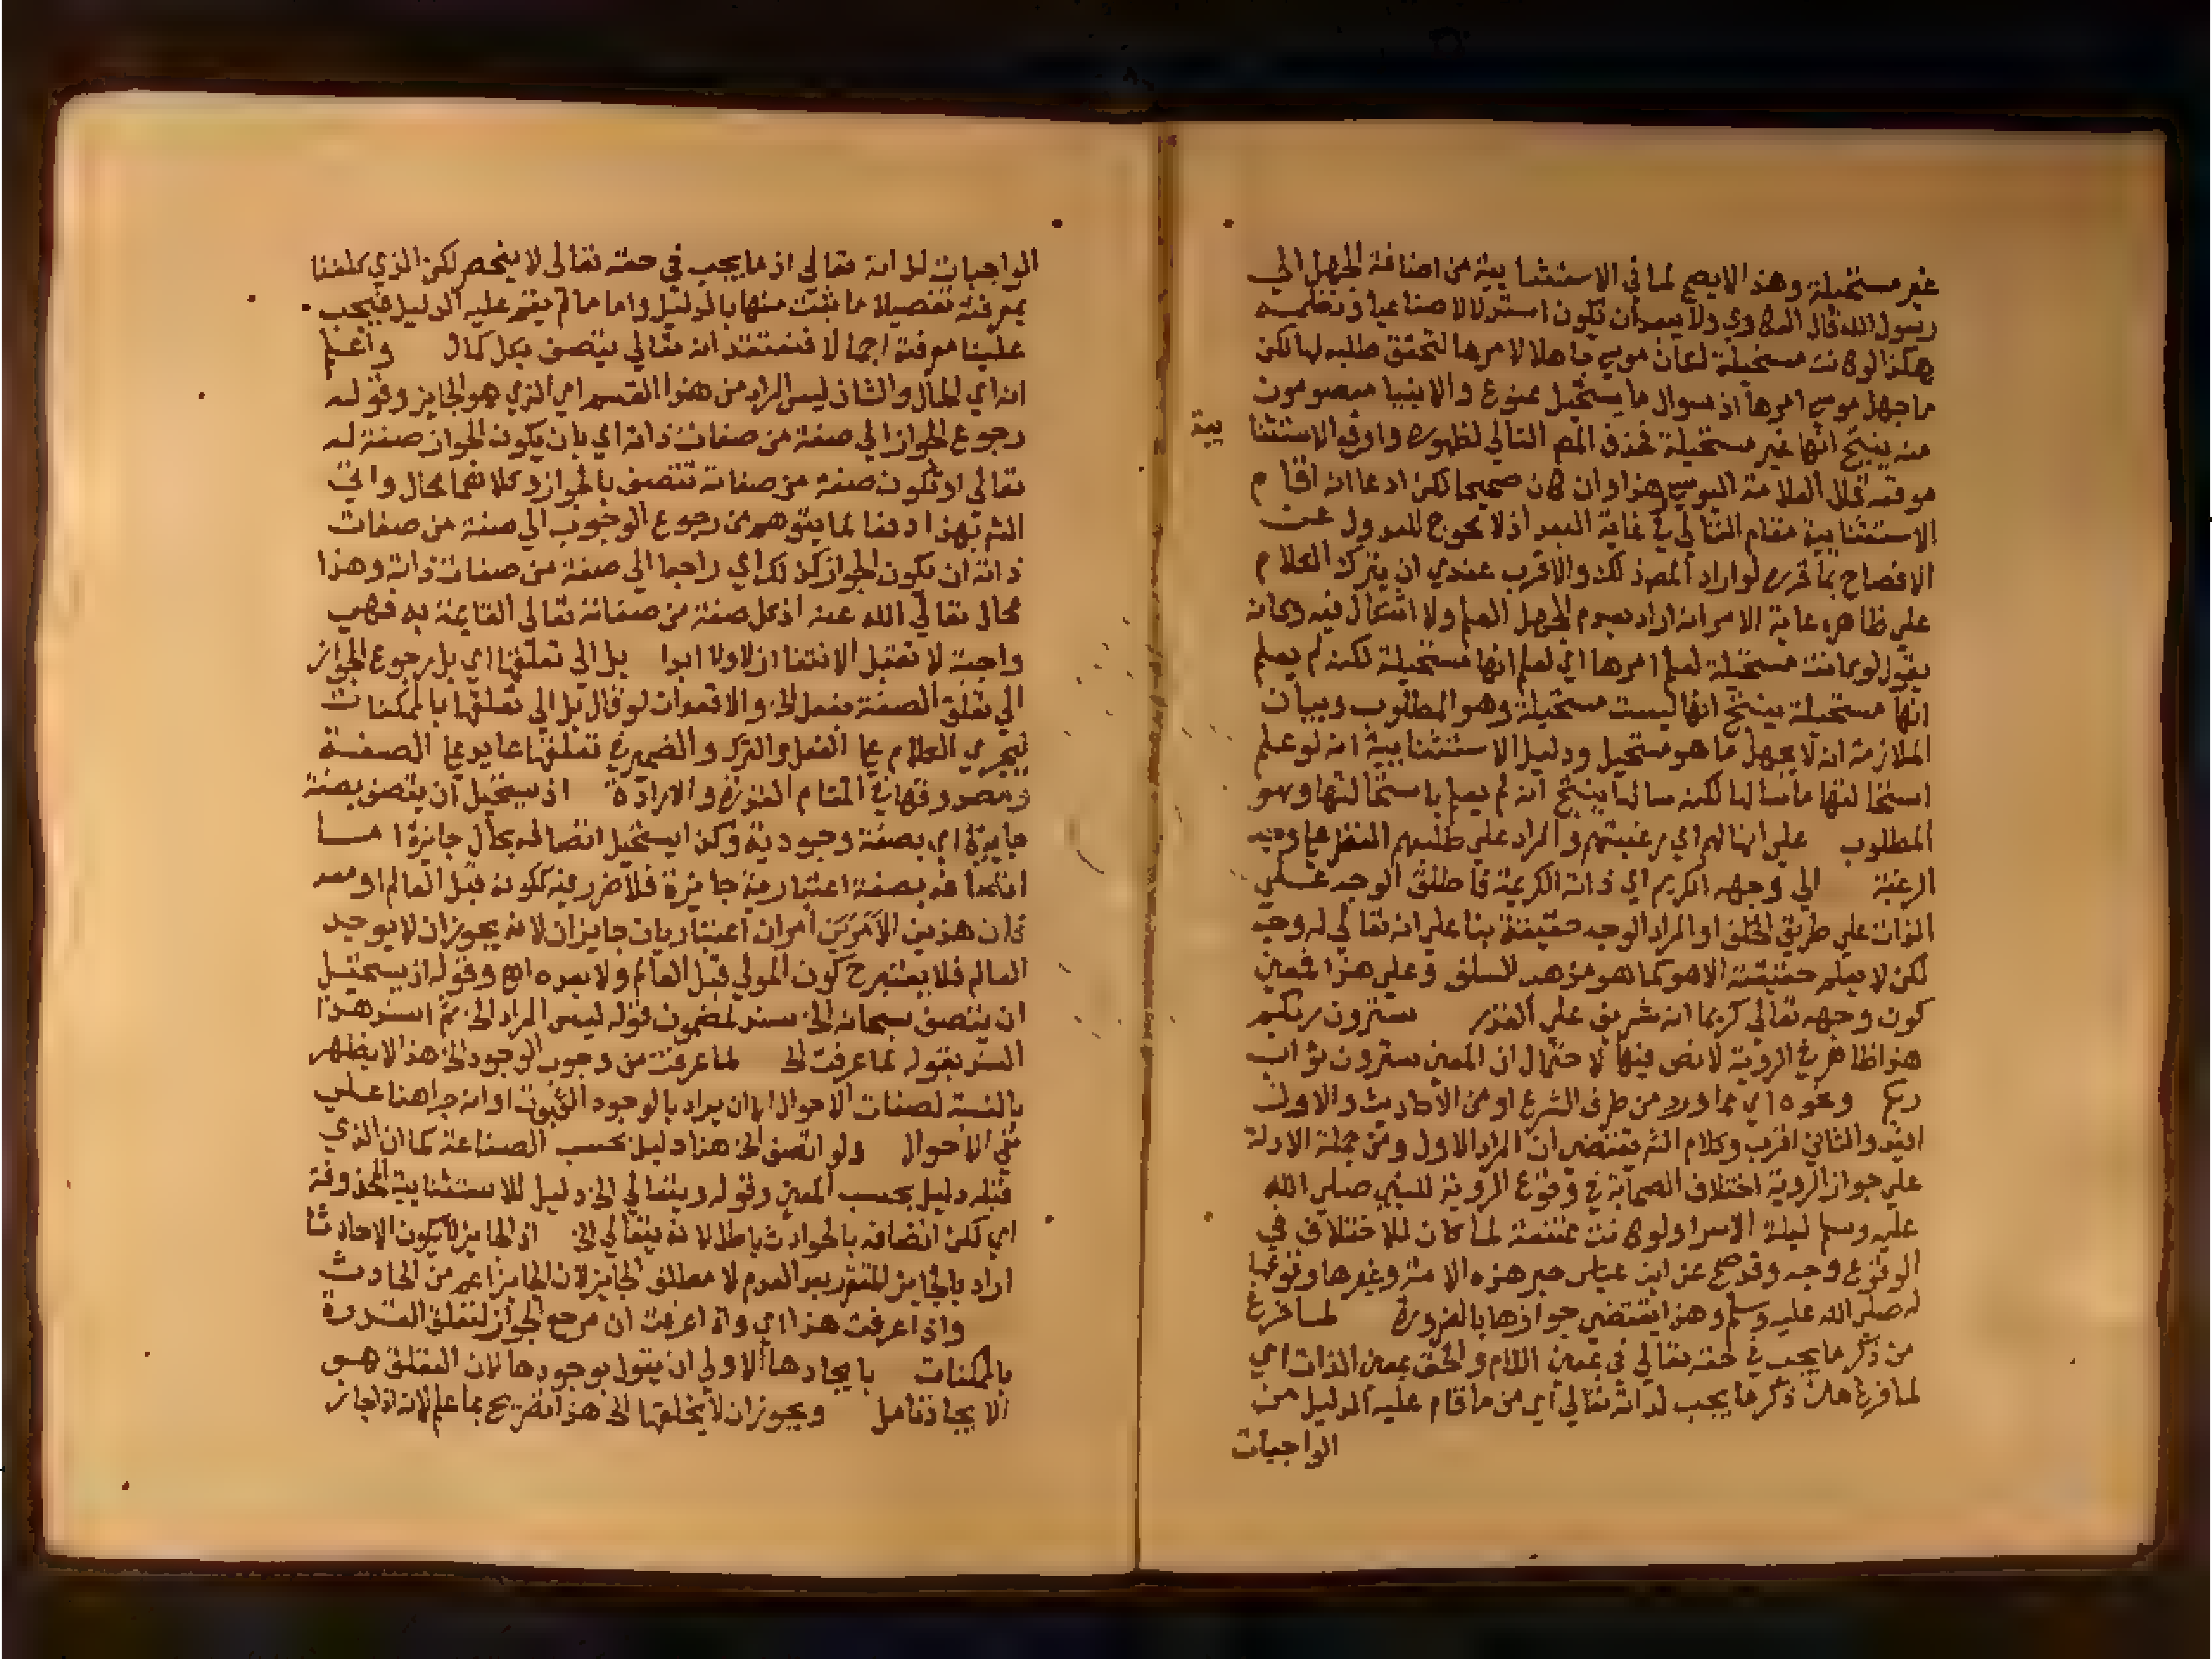 غير مستحيلة وهذا لا يصح لما في الاستثنا بية من اضافة الجهل الي
رسول الله قال الهاوي ولا يبعد ان تكون استدلالا صناعيا ونظمه
هكذا لو كانت مستحيلة لكان موسي جاهلا لامرها لتحقق طلبه لها لكن
ما جهل موسي امرها اذ سوال ما يستحيل ممنوع والانبيا معصومون
منه ينتج انها غير مستحيلة فحذف المص التالي لظهوره واوقع الاستثنا
بية
موقعه قال العلامة اليوسي هذا وان كان صحيحا لكن ادعا انه اقام
الاستثنايية مقام التالي في غاية البعد اذ لا محوج للعدول عن
الافصاح بما قرره لو اراد المص ذلك والاقرب عندي ان يترك الكلام
علي ظاهره غاية الامر انه اراد بعدم الجهل العلم ولا اشكال فيه وكانه
يقول لو كانت مستحيلة لعلم امرها اي لعلم انها مستحيلة لكنه لم يعلم
انها مستحيلة ينتج انها ليست مستحيلة وهو المطلوب وبيان
الملازمة انه لا يجهل ما هو مستحيل ودليل الاستثنايية انه لو علم
استحالتها ما سالها لكنه سالها ينتج انه لم يعلم باستحالتها وهو
المطلوب علي ابتهالهم اي رغبتهم والمراد علي طلبهم النظر علي وجه
الرغبة الي وجهه الكريم اي ذاته الكريمة فاطلق الوجه علي
الذات علي طريق الخلف او المراد الوجه حقيقة بنا علي انه تعالي له وجه
لكن لا يعلم حقيقته الا هو كما هو مذهب السلف وعلي هذا فمعني
كون وجهه تعالي كريما انه شريف علي القدر سترون ربكم
هذا ظاهر في الروية لا نص فيها لاحتمال ان المعني سترون ثواب
ربكم ونحوه اي مما ورد من طرف الشرع او من الاحاديث والاول
افيد والثاني اقرب وكلام الش يقتضي ان المراد الاول ومن جملة الادلة
علي جواز الروية اختلاف الصحابة في وقوع الروية للنبي صلي الله
عليه وسلم ليلة الاسرا ولو كانت ممتنعة لما كان للاختلاف في
الوقوع وجه وقد صح عن ابن عباس حبر هذه الامة وغيرها وقوعها
له صلي الله عليه وسلم وهذا يقتضي جوازها بالضرورة لما فرغ
من ذكر ما يجب في حقه تعالي في بمعني اللام والحق بمعني الذات اي
لما فرغ من ذكر ما يجب لذاته تعالي اي من ما قام عليه الدليل من
الواجبات
الواجبات لذاته تعالي اذ ما يجب في حقه تعالي لا ينحصر لكن الذي كلفنا
بمعرفته تفصيلا ما ثبت منها بالدليل واما ما لم يقم عليه الدليل فيجب
علينا معرفته اجمالا فنعتقد انه تعالي يتصف بكل كمال واعلم
انه اي الحال والشان ليس المراد من هذا القسم اي الذي هو الجايز وقوله
رجوع الجواز الي صفة من صفات ذاته اي بان يكون الجواز صفة له
تعالي او تكون صفة من صفاته تتصف بالجواز وكلاهما محال واتي
الش بهذا دفعا لما يتوهم من رجوع الوجوب الي صفة من صفات
ذاته ان يكون الجواز كذلك اي راجعا الي صفة من صفات ذاته وهذا
محال تعالي الله عنه اذ كل صفة من صفاته تعالي القايمة به فهي
واجبة لا تقبل الانتفا ازلا ولا ابدا بل الي تعلقها اي بل رجوع الجواز
الي تعلق الصفة بفعل الخ والاقعد ان لو قال بل الي تعلقها بالممكنات
ليجري الكلام علي الفعل والترك والضمير في تعلقها عايد علي الصفة
ومصدوقها في المقام القدرة والارادة اذ يستحيل ان يتصف بصفة
جايزة اي بصفة وجودية وكذا يستحيل اتصافه بحال جايزة اما
اتصافه بصفة اعتبارية جايزة فلا ضرر فيه ككونه قبل العالم او بعد
فان هذين الامرين امران اعتباريان جايزان لانه يجوز ان لا يوجد
العالم فلا يعتبر ح كون المولي قبل العالم ولا بعده اهـ وقوله اذ يستحيل
ان يتصف سبحانه الخ سند لمضمون قوله ليس المراد الخ ثم اسند هذا
السند بقوله لما عرفت الخ لما عرفت من وجوب الوجود الخ هذا لا يظهر
بالنسبة لصفات الاحوال الا ان يراد بالوجود الثبوت او انه جرا هنا علي
نفي الاحوال ولو اتصف الخ هذا دليل بحسب الصناعة كما ان الذي
قبله دليل بحسب المعني وقوله ويتعالي الخ دليل للاستثنايية المحذوفة
اي لكن اتصافه بالحوادث باطل لانه يتعالي الخ اذ الجايز لا يكون الا حادثا
اراد بالجايز المتقرر بعد العدم لا مطلق الجايز لان الجايز اعم من الحادث
واذا عرفت هذا اي واذا عرفت ان مرجع الجواز لتعلق القدرة
بالممكنات بايجادها الاولي ان يقول بوجودها لان التعلق هو
الايجاد تامل ويجوز ان لا يخلقها الخ هذا تصريح بما علم لانه اذا جاز